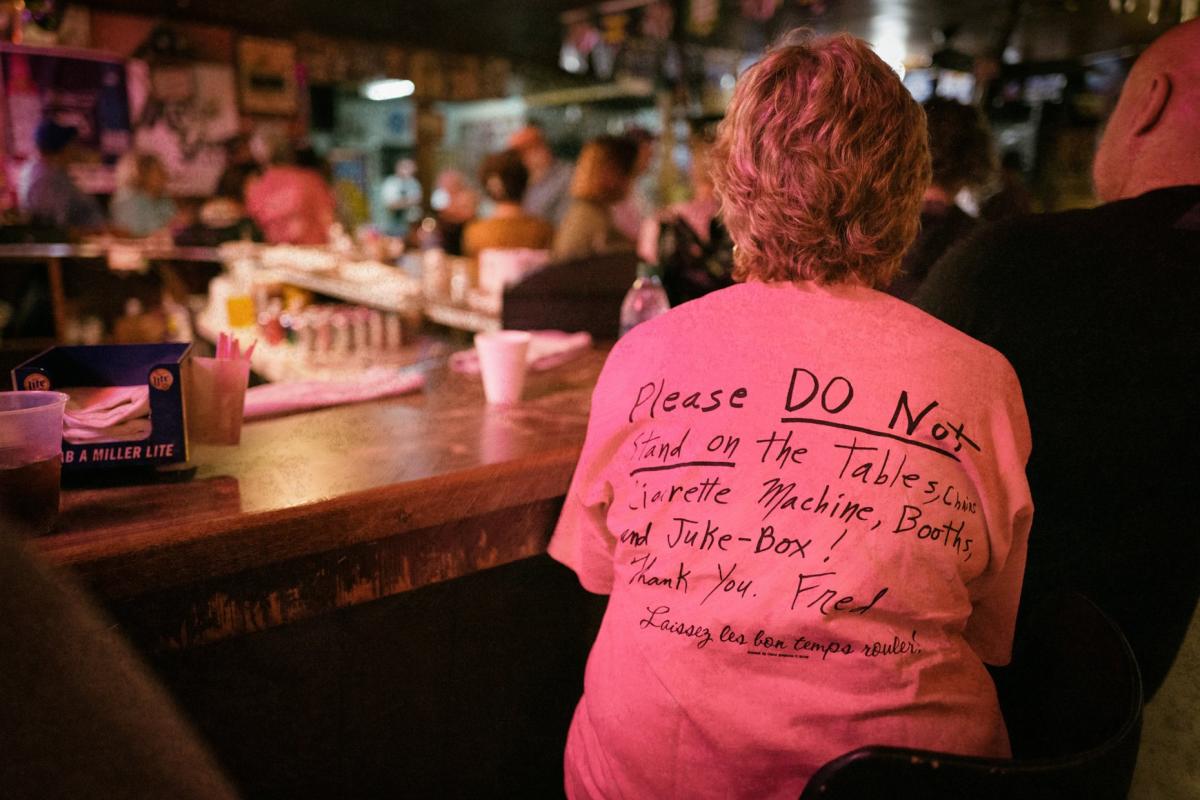 Please DO Not
Stand on the Tables, Chairs
Cigarette Machine, Booths,
and Juke-Box!
Thank You. Fred
Laissez les bon temps rouler!
lite
lite
B A MILLER LITE